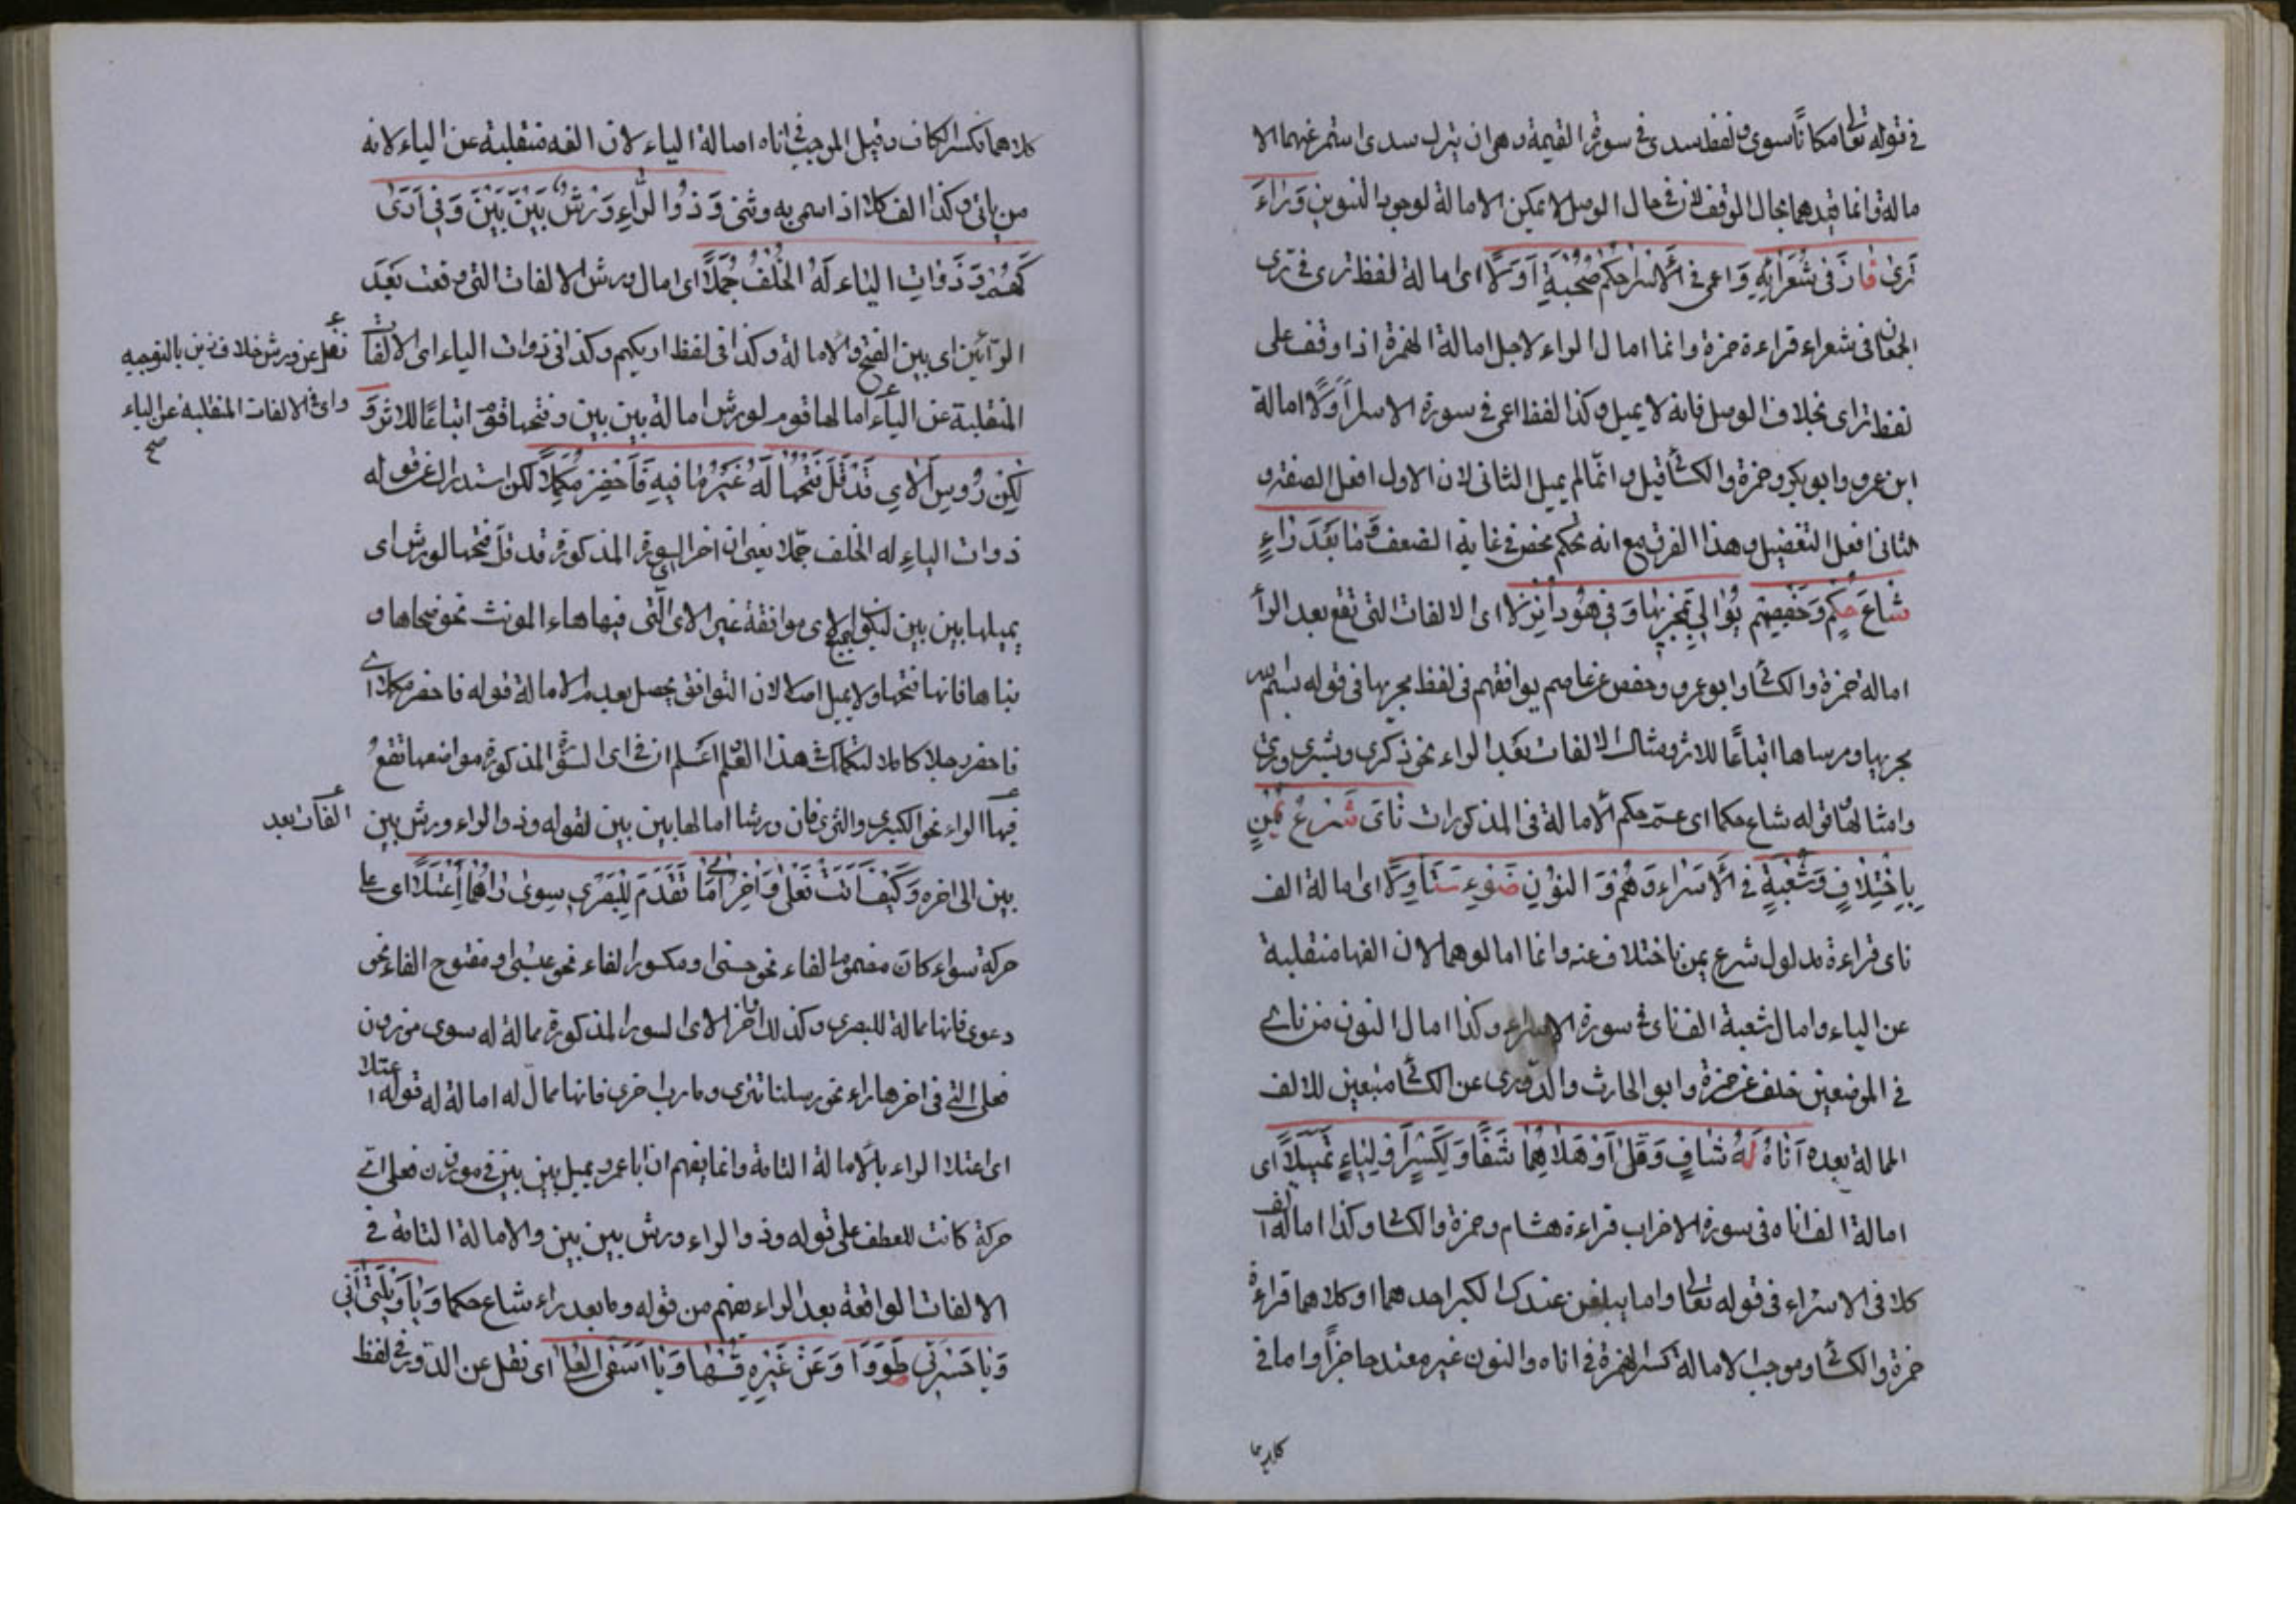 في قوله تعا مكانًا سوى ولفظ سدى في سورة القيمة وهو ان يترك سدى استمر عنهما الا
مالة وانما قيدهما بحال الوقف لان في حال الوصل لا يمكن الامالة لوجود التنوين وَرَاءَ
تَرَىٰ فَازَ فى شُعَرَائِهِ وَاعمى في الاسرا حُكْمُ صُحْبَةٍ اَوَّلًا اى امالة لفظ ترى في ترى
الجمعان في شعراء قراءة حمزة وانما امال الراء لاجل امالة الهمزة اذا وقف على
لفظ تراى بخلاف الوصل فانه لا يميل وكذا لفظ اعمى في سورة الاسرا اَوَّلًا امالة
ابن عمرو وابو بكر وحمزة والكسائى قيل وانما لم يميل الثانى لان الاول افعل الصفة و
الثانى افعل التفضيل وهذا الفرق مع انه تحكم محض في غاية الضعف وَمَا بَعْدَ رَاءٍ
شَاعَ حُكْمٌ وَحَفْصُهُمْ يُوَالِى بِمَجْرِيهَا وَفِى هُودَ اُنْزِلَا اى الالفات التى تقع بعد الراء
امالة حمزة والكسائى وابو عمرو وحفص عن عاصم يوافقهم في لفظ مجريها فى قوله بسم الله
مجريها ومرساها اتباعًا للاثر ومثال الالفات بعد الراء نحو ذكرى وبشرى وترى
وامثالها قوله شاع حكما اى عمّ حكم الامالة في المذكورات نَاىَ شَرْعُ يُمْنٍ
بِاخْتِلَافٍ وَشُعْبَةٌ فِى الْاَسْرَاءِ وَهُمْ وَالنُّوْنِ ضَوْءِ سَنًا وَلَا اى امالة الف
ناى قراءة مدلول شرع يمن باختلاف عنه وانما امالوهما لان الفها منقلبة
عن الياء وامال شعبة الف ناى في سورة الاسراء وكذا امال النون من ناى
في الموضعين خلف عن حمزة وابو الحارث والدورى عن الكسا متبعين للالف
الممالة بعده اَنَاهُ لَهُ شَافٍ وَقُلْ اَوْ كِلَاهُمَا شَفَا وَلِكَسْرٍ اَوْ لِيَاءٍ تَمَيَّلَا اى
امالة الف اناه فى سورة الاحزاب قراءة هشام وحمزة والكسا وكذا امالة الف
كلا فى الاسراء فى قوله تعا واما يبلغن عندك الكبر احدهما او كلاهما قراءة
حمزة والكسا وموجب الامالة كسر الهمزة في اناه والنون غير معتد حاجزاً واما في
كلاهما
كلاهما فكسر الكاف وقيل الموجب في اناه امالة الياء لان الفه منقلبة عن الياء لانه
من يانى وكذا الف كلا اذا سمى به وثنى وَذُو الرَّاءِ وَرْشٌ بَيْنَ بَيْنَ وَفِى اَرٰى
كَهُمْ وَذَوَاتِ الْيَاءِ لَهُ الْخُلْفُ جُمِّلَا اى امال ورش الالفات التى وقعت بعد
الرائين اى بين الفتح والامالة وكذا فى لفظ اريكهم وكذا فى ذوات الياء اى الالفات
نقل عن ورش خلاف ذين بالتوجيه
المنقلبة عن الياء امالها قوم لورش امالة بين بين وفتحها قوم اتباعًا للاثر وَ
واى الالفات المنقلبة عن الياء
صح
لٰكِنْ رُؤُسُ الْاٰىِ قَدْ قَلَّ فَتْحُهَا لَهُ غَيْرَ مَا فِيهِ فَاحْضُرْ مُكَمَّلَا لكن استدراك عن قوله
ذوات الياءِ له الخلف جمّلا يعنى ان اخر السورة المذكورة قد قلّ فتحها لورش اى
يميلها بين بين ليكون جميع الاى موافقة غير الاى التى فيها هاء المونث نحو ضحاها و
بناها فانها فتحها ولا يميل اصلا لان التوافق يحصل بعدم الامالة قوله فاحضر مكملا اى
فاحضر رجلا كاملا لتكمالك هذا العلم اعلم ان في اى السورة المذكورة مواضعها تقع
فيها الراء نحو الكبرى والثرى فان ورشا امالها بين بين لقوله وذو الراء ورش بين
الفات بعد
بين الى اخره وَكَيْفَ اَتَتْ فَعْلٰى وَاٰخِرُ اٰىِ مَا تَقَدَّمَ لِلْبَصْرِى سِوٰى رَاهُمَا اعْتَلَا اى على
حركة سواء كان مضموم الفاء نحو حسنى او مكسور الفاء نحو عيسى او مفتوح الفاء نحو
دعوى فانها ممالة للبصرى وكذلك اواخر الاى السور المذكورة ممالة له سوى من زون
فعلى التى فى اخرها راء نحو رسلنا تترى ومارب اخرى فانها ممال له امالة له قوله اعتلا
اى اعتلا الراء بالامالة التامة وانما يفهم ان ابا عمرو يميل بين بين في موزن فعلى اتى
حركة كانت للعطف على قوله وذو الراء ورش بين بين والامالة التامة في
الالفات الواقعة بعد الراء يفهم من قوله وما بعد راء شاع حكما وَيَا وَيْلَتٰى اَنّٰى
وَيَا حَسْرَتٰى طَوَوْا وَعَنْ غَيْرِهِ قِسْهَا وَيَا اَسَفَى الْعُلَا اى نقل عن الدورى في لفظ